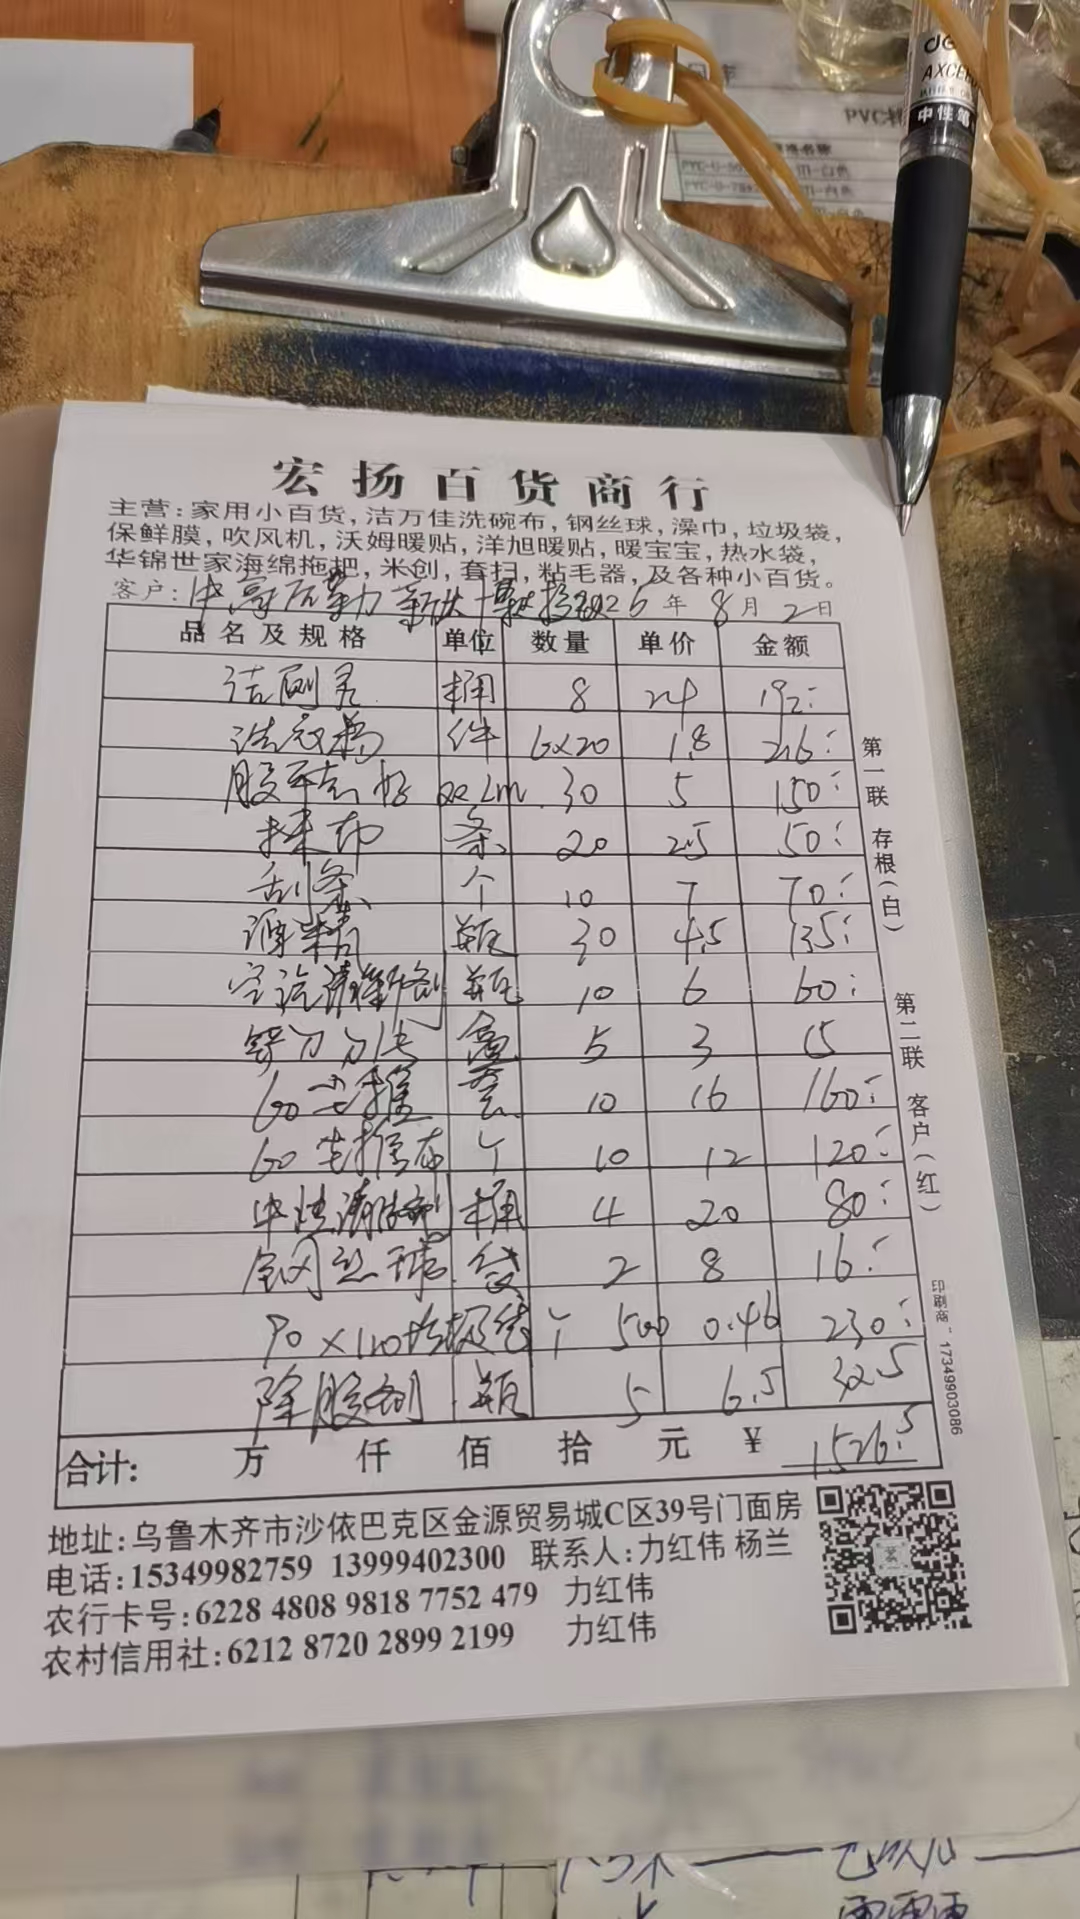 AXCEED
中性笔
PVC
宏扬百货商行
主营:家用小百货,洁万佳洗碗布,钢丝球,澡巾,垃圾袋,
保鲜膜,吹风机,沃姆暖贴,洋旭暖贴,暖宝宝,热水袋,
华锦世家海绵拖把,米创,套扫,粘毛器,及各种小百货。
客户: 25年8月2日
品名及规格 单位 数量 单价 金额
洁厕灵 桶 8 24 192
件 6×20 1.8 216
30 5 150
抹布 条 20 2.5 50
刮条 个 10 7 70
酒精 瓶 30 4.5 135
瓶 10 6 60
铲刀刀片 盒 5 3 15
60尘推 套 10 16 160
60尘推布 个 10 12 120
中性清洁剂 桶 4 20 80
钢丝球 袋 2 8 16
90×110垃圾袋 个 500 0.46 230
除胶剂 瓶 5 6.5 32.5
合计: 万 仟 佰 拾 元 ¥ 1526.5
第一联 存根(白)
第二联 客户(红)
印刷商:17349903086
地址:乌鲁木齐市沙依巴克区金源贸易城C区39号门面房
电话:15349982759 13999402300 联系人:力红伟 杨兰
农行卡号:6228 4808 9818 7752 479 力红伟
农村信用社:6212 8720 2899 2199 力红伟